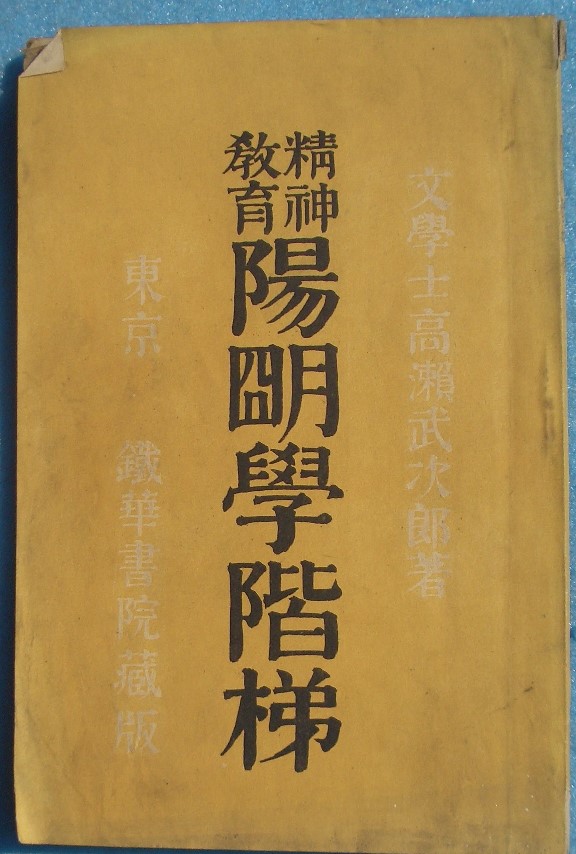 文學士高瀨武次郎著
精神
教育
陽朙學階梯
東京 鐵華書院藏版